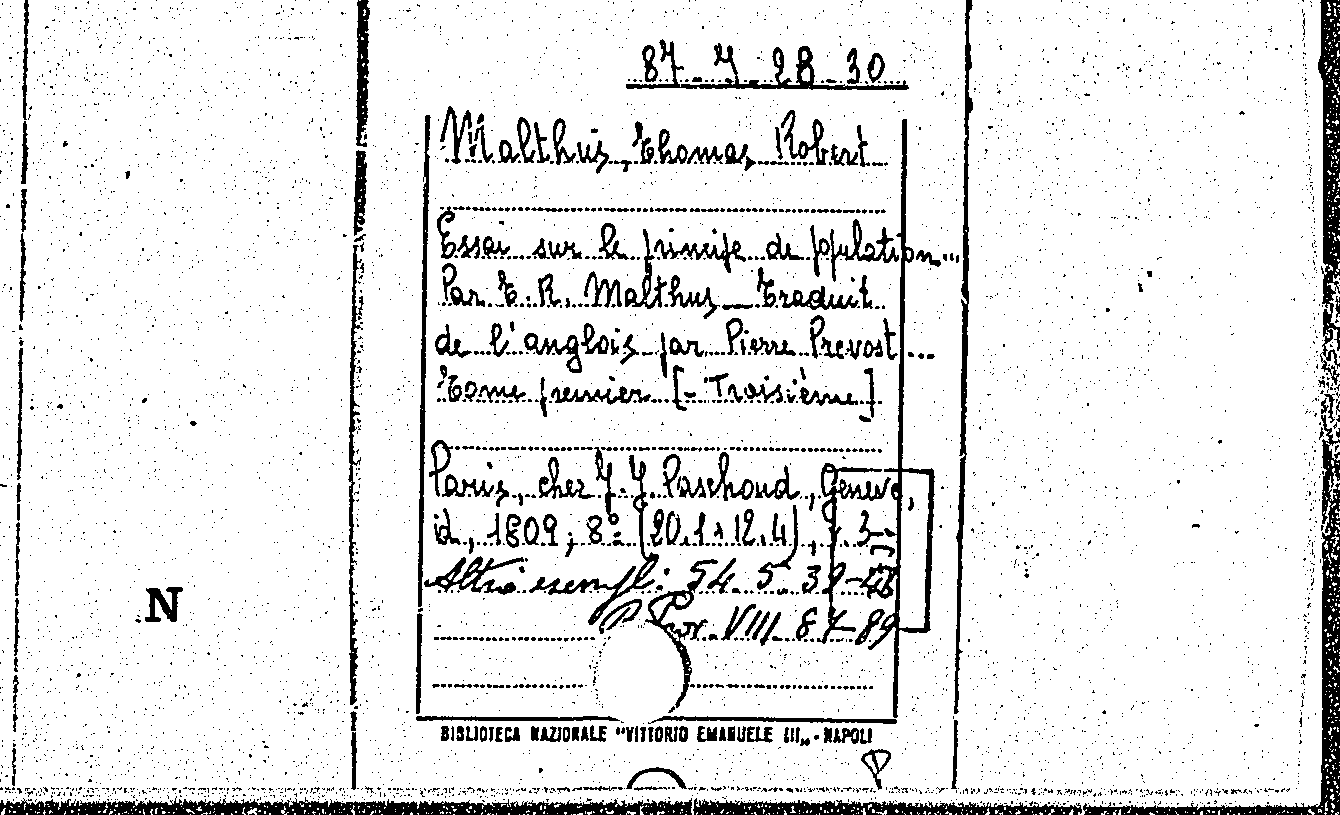 87_7_28_30
Malthus, Thomas Robert
Essai sur le principe de population...
Par T. R. Malthus_Traduit
de l'anglois par Pierre Prevost...
Tome premier [-Troisième]
Paris, chez J.J. Paschoud, Genève,
id, 1809; 8° (20.1×12.4), v. 3
Altro esempl: 54. 5. 39-
VIII. 87-89
N
BIBLIOTECA NAZIONALE "VITTORIO EMANUELE III„ - NAPOLI